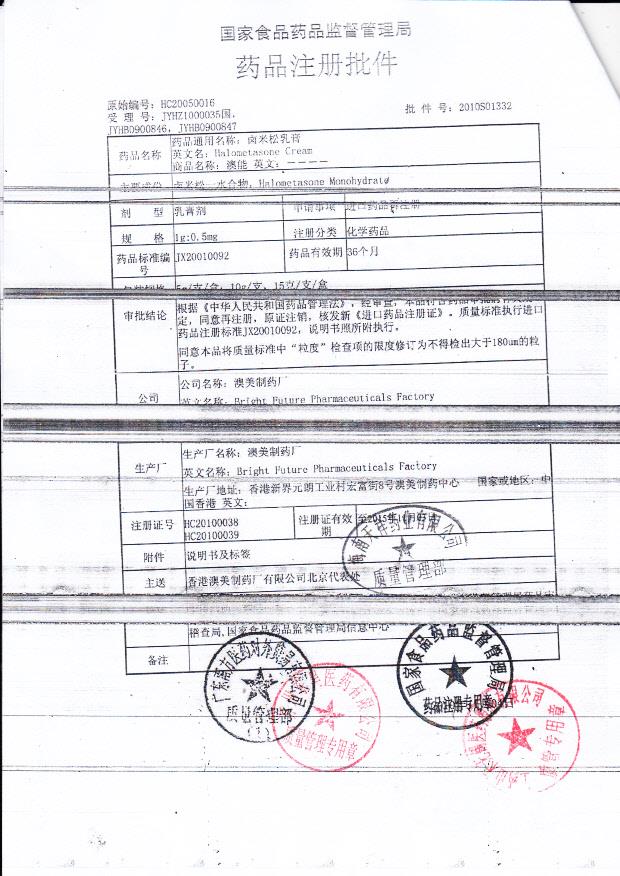 国家食品药品监督管理局
药品注册批件
原始编号: HC20050016
受 理 号: JYHZ1000035国,
JYHB0900846, JYHB0900847
批 件 号: 2010S01332
药品名称
药品通用名称: 卤米松乳膏
英文名: Halometasone Cream
商品名称: 澳能 英文: ----
主要成份
卤米松一水合物, Halometasone Monohydrate
剂 型
乳膏剂
申请事项
进口药品再注册
规 格
1g:0.5mg
注册分类
化学药品
药品标准编号
JX20010092
药品有效期
36个月
5g/支/盒, 10g/支, 15克/支/盒
审批结论
根据《中华人民共和国药品管理法》, 经审查, 本品符合药品审批的有关规
定, 同意再注册, 原证注销, 核发新《进口药品注册证》. 质量标准执行进口
药品注册标准JX20010092, 说明书照所附执行.
同意本品将质量标准中“粒度”检查项的限度修订为不得检出大于180um的粒
子.
公司
公司名称: 澳美制药厂
英文名称: Bright Future Pharmaceuticals Factory
生产厂
生产厂名称: 澳美制药厂
英文名称: Bright Future Pharmaceuticals Factory
生产厂地址: 香港新界元朗工业村宏富街8号澳美制药中心 国家或地区: 中
国香港 英文:
注册证号
HC20100038
HC20100039
注册证有效期
至2015年
附件
说明书及标签
主送
香港澳美制药厂有限公司北京代表处
稽查局, 国家食品药品监督管理局信息中心
备注
药业有限公司
质量管理部
质量管理部
(1)
医药有限公司
质量管理专用章
国家食品药品监督管理局
药品注册专用章
有限公司
质管专用章